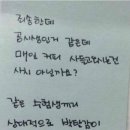 죄송한데
공시생인거 같은데
매일 커피 사들고오시는건
사치 아닐까요?
같은 수험생끼리
상대적으로 박탈감이